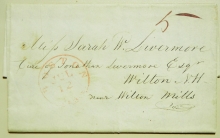 5
Miss Sarah W. Livermore
Care of Jonathan Livermore Esqr
Wilton N.H.
near Wilton Mills